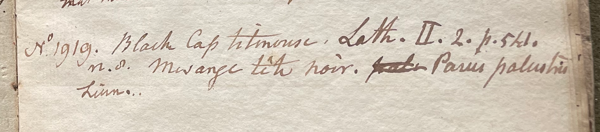 No 1919. Black Cap titmouse. Lath. II. 2. p. 541.
n. 8. Mesange tête noir. Parus palustris
Linn..